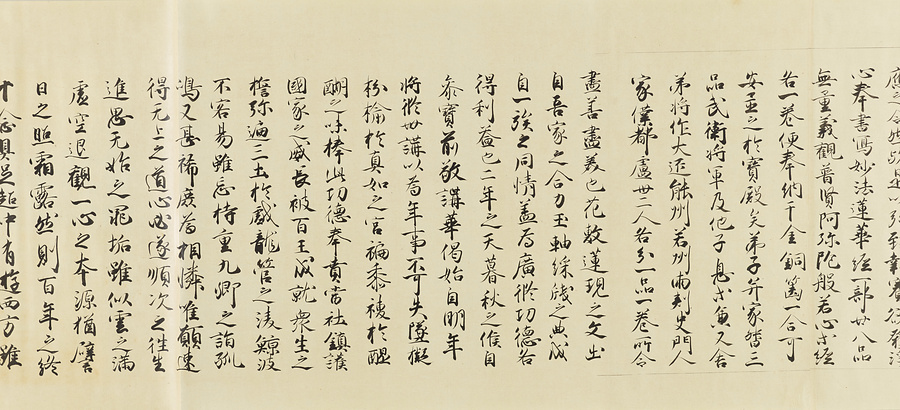 心奉書写妙法蓮華経一部廿八品
無量義觀普賢阿弥陀般若心等經
各一巻便奉納于金銅篋一合可
安置之於寶殿矣弟子并家督三
品武衛将軍及他子息等兼又舎
弟将作大匠能州若州両刺史門人
家僕都盧卅二人各分一品一巻所令
盡善盡美也花敷蓮現之文出
自吾家之合力玉軸綵牋之典成
自一族之同情盖為廣修功徳各
得利益也二年之天暮秋之候自
参寳前敬講華偈始自明年
将修卅講以為年事不可失墜擬
枌楡於真如之宮褊黍稷於醍
醐之味捧此功徳奉賁當社鎮護
國家之威長被百王成就衆生之
擔弥遍三土於戯龍管之凌鯨波
不容易雖忘特重九卿之詣孤
嶋又甚稀展為相憐唯願速
得无上之道心必遂順次之往生
進思无始之罪垢雖似雲之満
虚空退觀一心之本源猶譬
日之照霜露然則百年之終
十念具足超中有